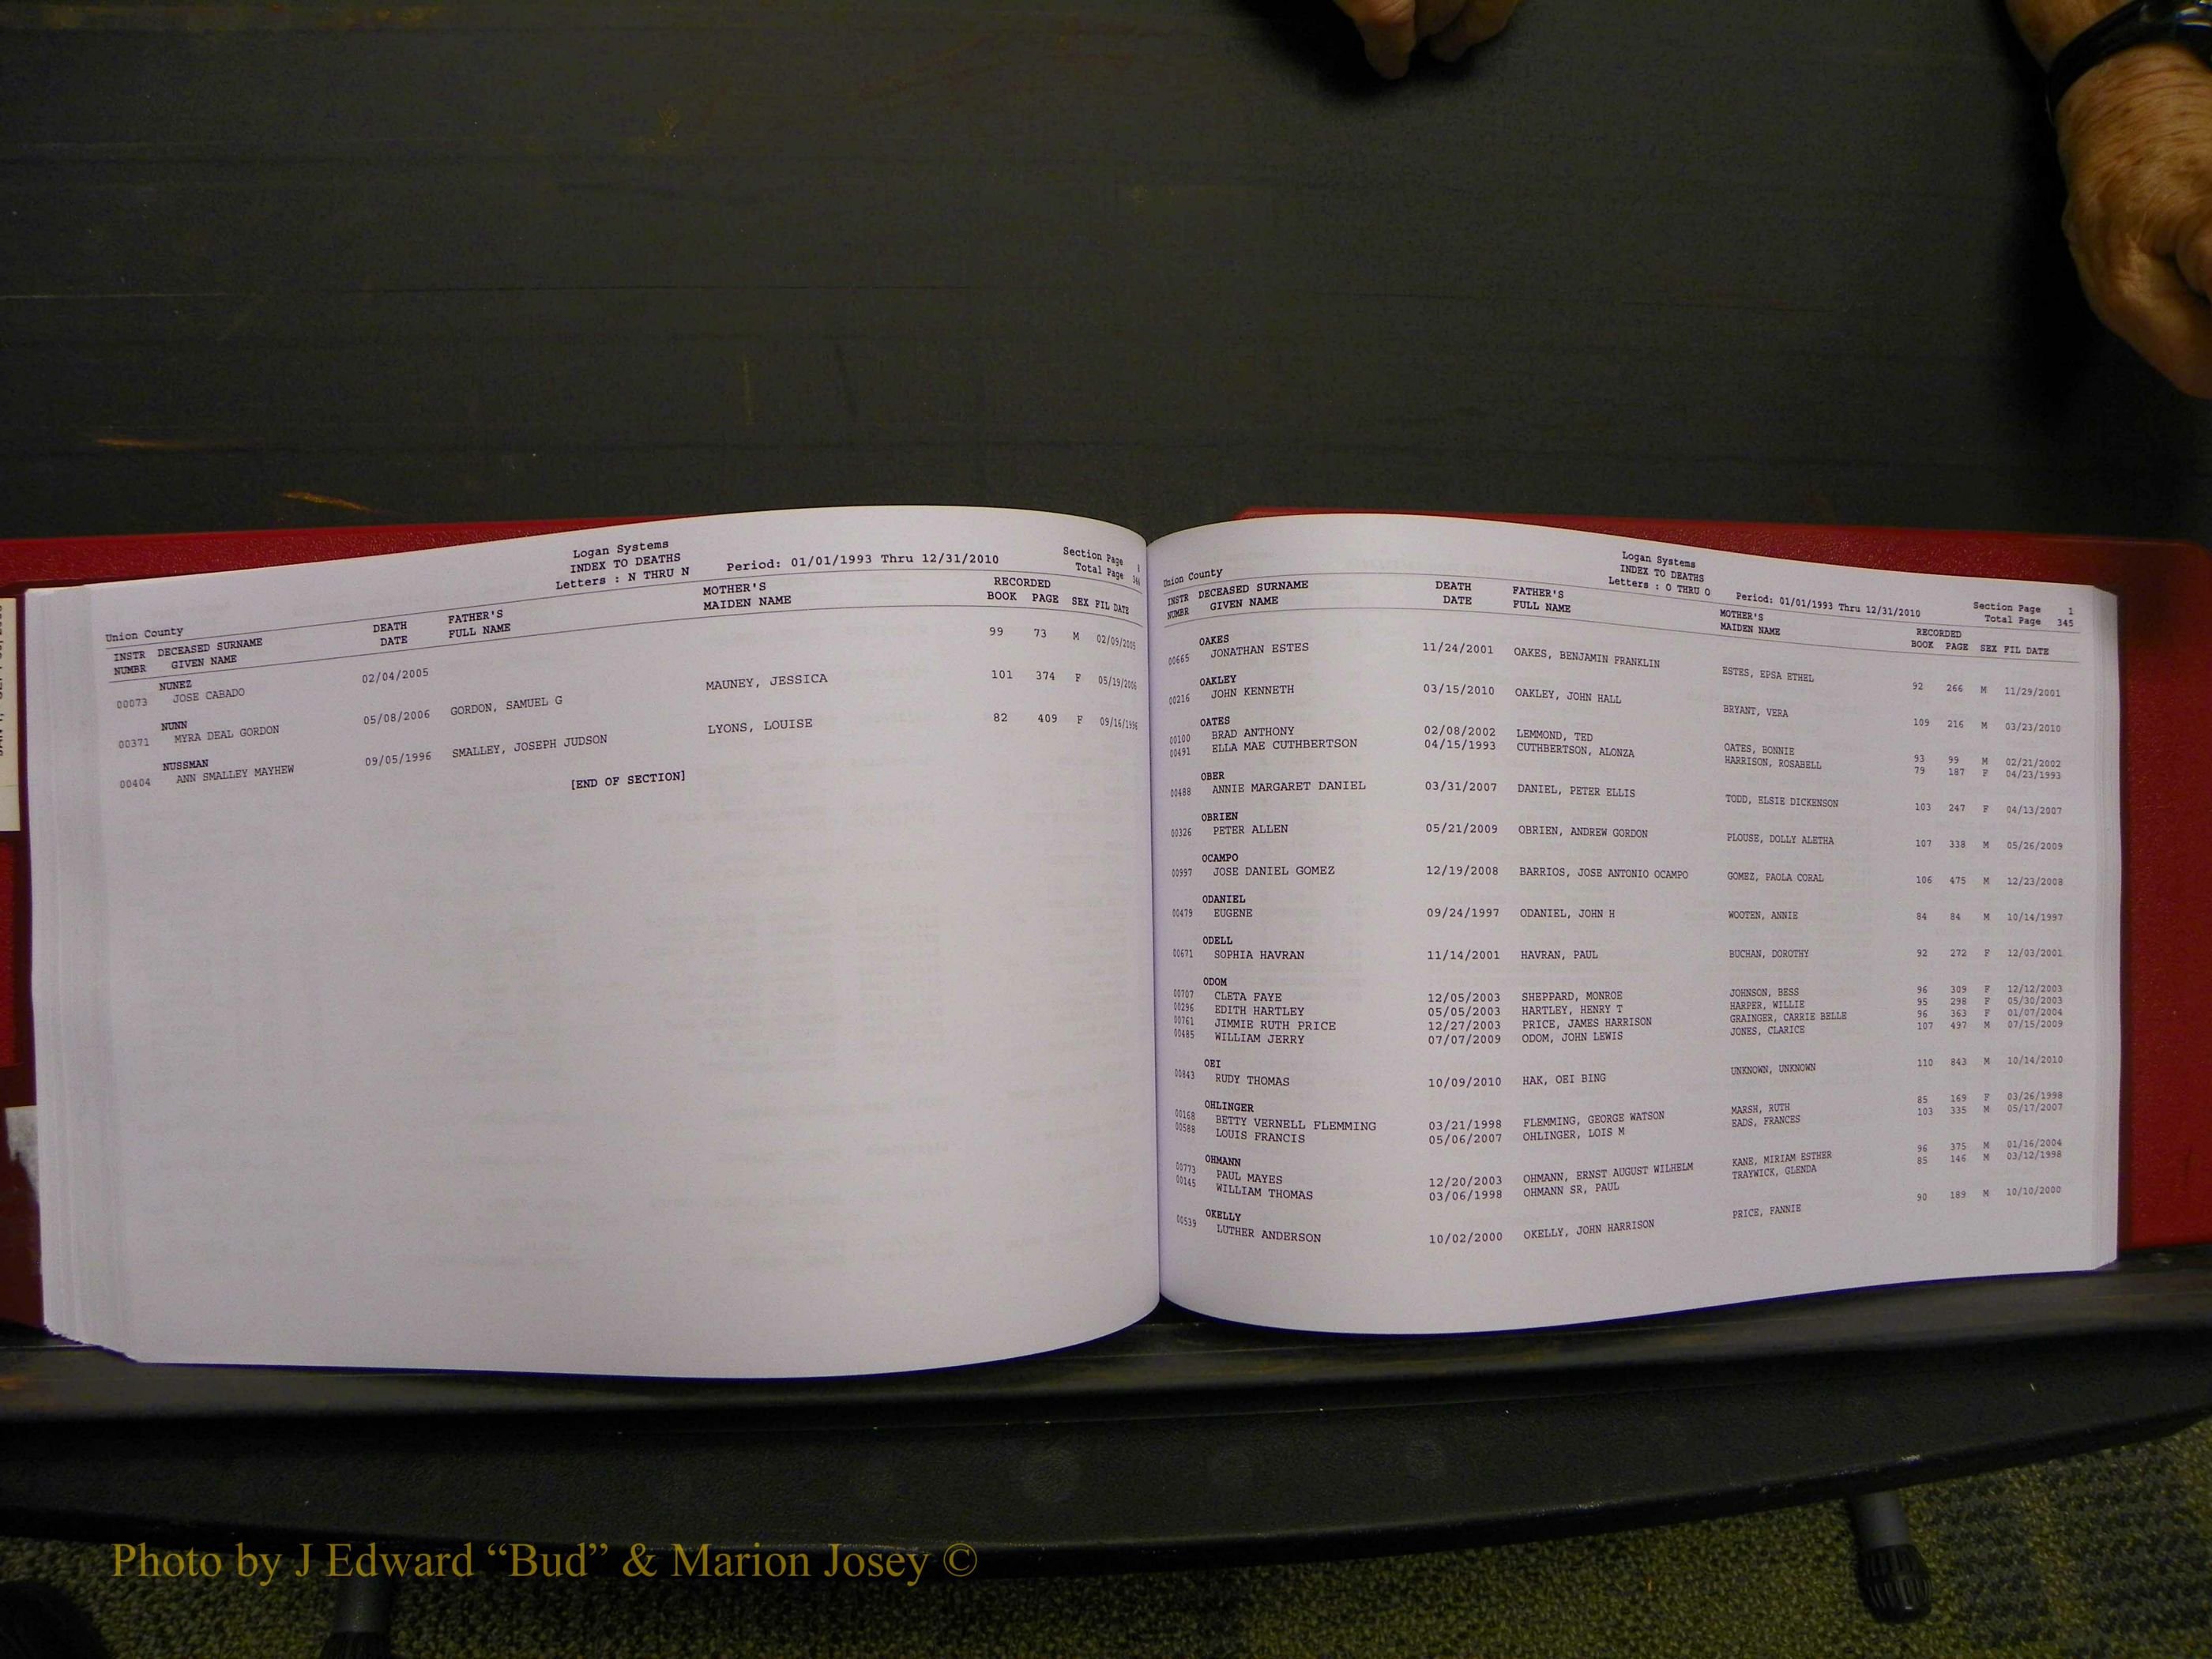 Logan Systems
INDEX TO DEATHS
Letters : N THRU N Period: 01/01/1993 Thru 12/31/2010 Section Page
Total Page 344
Union County
INSTR DECEASED SURNAME DEATH FATHER'S MOTHER'S RECORDED
NUMBR GIVEN NAME DATE FULL NAME MAIDEN NAME BOOK PAGE SEX FIL DATE
NUNEZ
00073 JOSE CABADO 02/04/2005 99 73 M 02/09/2005
NUNN
00371 MYRA DEAL GORDON 05/08/2006 GORDON, SAMUEL G MAUNEY, JESSICA 101 374 F 05/19/2006
NUSSMAN
00404 ANN SMALLEY MAYHEW 09/05/1996 SMALLEY, JOSEPH JUDSON LYONS, LOUISE 82 409 F 09/16/1996
[END OF SECTION]
Logan Systems
INDEX TO DEATHS
Letters : O THRU O Period: 01/01/1993 Thru 12/31/2010 Section Page 1
Total Page 345
Union County
INSTR DECEASED SURNAME DEATH FATHER'S MOTHER'S RECORDED
NUMBR GIVEN NAME DATE FULL NAME MAIDEN NAME BOOK PAGE SEX FIL DATE
OAKES
00665 JONATHAN ESTES 11/24/2001 OAKES, BENJAMIN FRANKLIN ESTES, EPSA ETHEL 92 266 M 11/29/2001
OAKLEY
00216 JOHN KENNETH 03/15/2010 OAKLEY, JOHN HALL BRYANT, VERA 109 216 M 03/23/2010
OATES
00100 BRAD ANTHONY 02/08/2002 LEMMOND, TED OATES, BONNIE 93 99 M 02/21/2002
00491 ELLA MAE CUTHBERTSON 04/15/1993 CUTHBERTSON, ALONZA HARRISON, ROSABELL 79 187 F 04/23/1993
OBER
00488 ANNIE MARGARET DANIEL 03/31/2007 DANIEL, PETER ELLIS TODD, ELSIE DICKENSON 103 247 F 04/13/2007
OBRIEN
00326 PETER ALLEN 05/21/2009 OBRIEN, ANDREW GORDON PLOUSE, DOLLY ALETHA 107 338 M 05/26/2009
OCAMPO
00997 JOSE DANIEL GOMEZ 12/19/2008 BARRIOS, JOSE ANTONIO OCAMPO GOMEZ, PAOLA CORAL 106 475 M 12/23/2008
ODANIEL
00479 EUGENE 09/24/1997 ODANIEL, JOHN H WOOTEN, ANNIE 84 84 M 10/14/1997
ODELL
00671 SOPHIA HAVRAN 11/14/2001 HAVRAN, PAUL BUCHAN, DOROTHY 92 272 F 12/03/2001
ODOM
00707 CLETA FAYE 12/05/2003 SHEPPARD, MONROE JOHNSON, BESS 96 309 F 12/12/2003
00296 EDITH HARTLEY 05/05/2003 HARTLEY, HENRY T HARPER, WILLIE 95 298 F 05/30/2003
00761 JIMMIE RUTH PRICE 12/27/2003 PRICE, JAMES HARRISON GRAINGER, CARRIE BELLE 96 363 F 01/07/2004
00485 WILLIAM JERRY 07/07/2009 ODOM, JOHN LEWIS JONES, CLARICE 107 497 M 07/15/2009
OEI
00843 RUDY THOMAS 10/09/2010 HAK, OEI BING UNKNOWN, UNKNOWN 110 843 M 10/14/2010
OHLINGER
00168 BETTY VERNELL FLEMMING 03/21/1998 FLEMMING, GEORGE WATSON MARSH, RUTH 85 169 F 03/26/1998
00588 LOUIS FRANCIS 05/06/2007 OHLINGER, LOIS M EADS, FRANCES 103 335 M 05/17/2007
OHMANN
00773 PAUL MAYES 12/20/2003 OHMANN, ERNST AUGUST WILHELM KANE, MIRIAM ESTHER 96 375 M 01/16/2004
00145 WILLIAM THOMAS 03/06/1998 OHMANN SR, PAUL TRAYWICK, GLENDA 85 146 M 03/12/1998
OKELLY
00539 LUTHER ANDERSON 10/02/2000 OKELLY, JOHN HARRISON PRICE, FANNIE 90 189 M 10/10/2000
Photo by J Edward “Bud” & Marion Josey ©